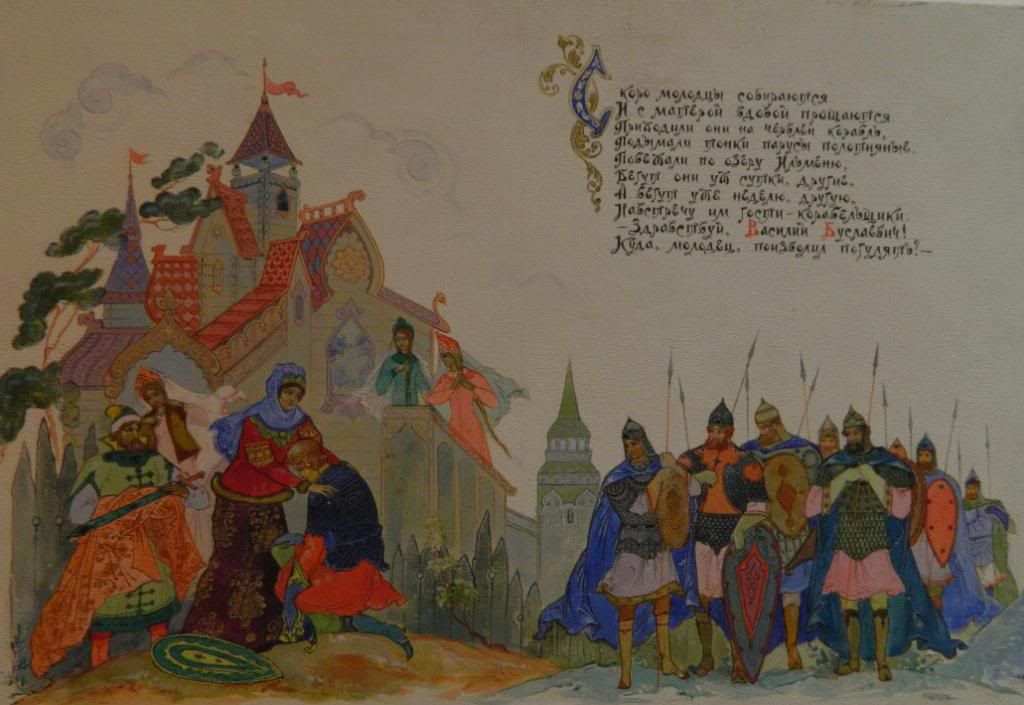 Скоро молодцы собираются
И с матерой вдовой прощаются
Приходили они на червлен корабль,
Подымали тонки парусы полотняные,
Побежали по озеру Ильменю,
Бегут они уж сутки, другие,
А бегут уже неделю, другую,
Навстречу им гости-корабельщики
-Здравствуй, Василий Буслаевич!
Куда, молодец, поизволил погулять?-